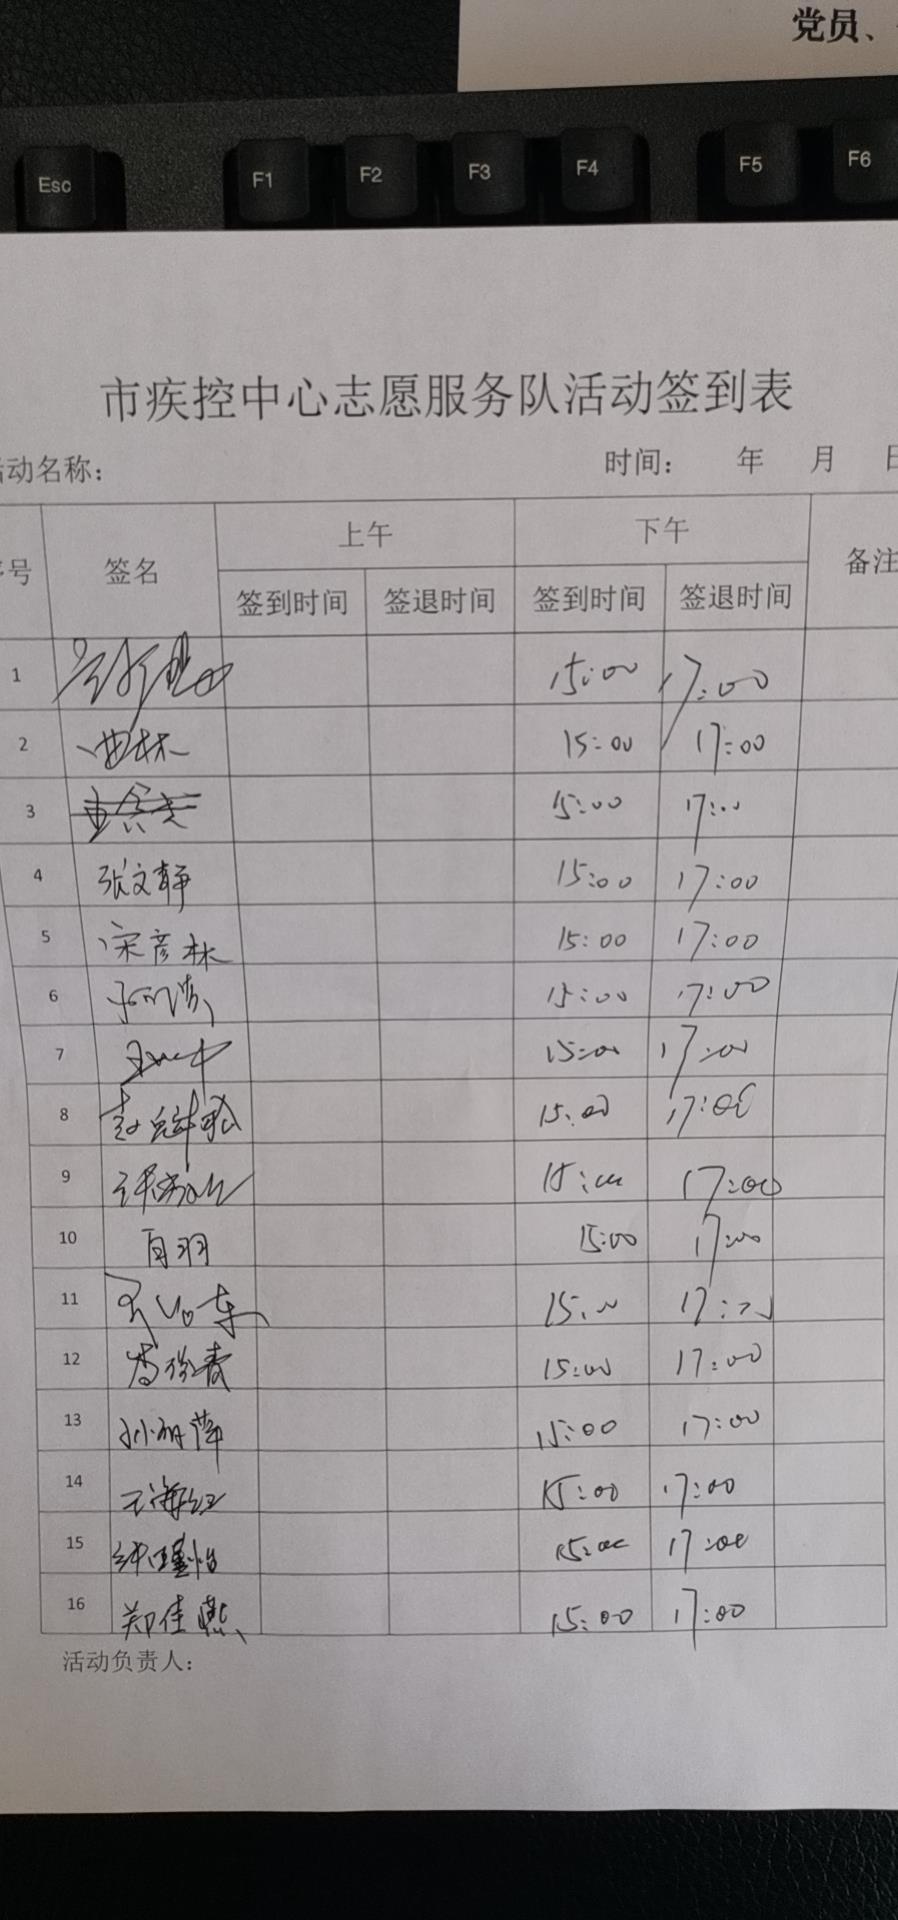 党员、
Esc F1 F2 F3 F4 F5 F6
市疾控中心志愿服务队活动签到表
活动名称： 时间： 年 月 日
序号 签名 上午 下午 备注
签到时间 签退时间 签到时间 签退时间
1 15:00 17:00
2 曲林 15:00 17:00
3 15:00 17:00
4 张文静 15:00 17:00
5 宋彦林 15:00 17:00
6 15:00 17:00
7 15:00 17:00
8 15:00 17:00
9 15:00 17:00
10 肖羽 15:00 17:00
11 15:00 17:00
12 15:00 17:00
13 孙丽萍 15:00 17:00
14 王海红 15:00 17:00
15 15:00 17:00
16 郑佳燕 15:00 17:00
活动负责人：